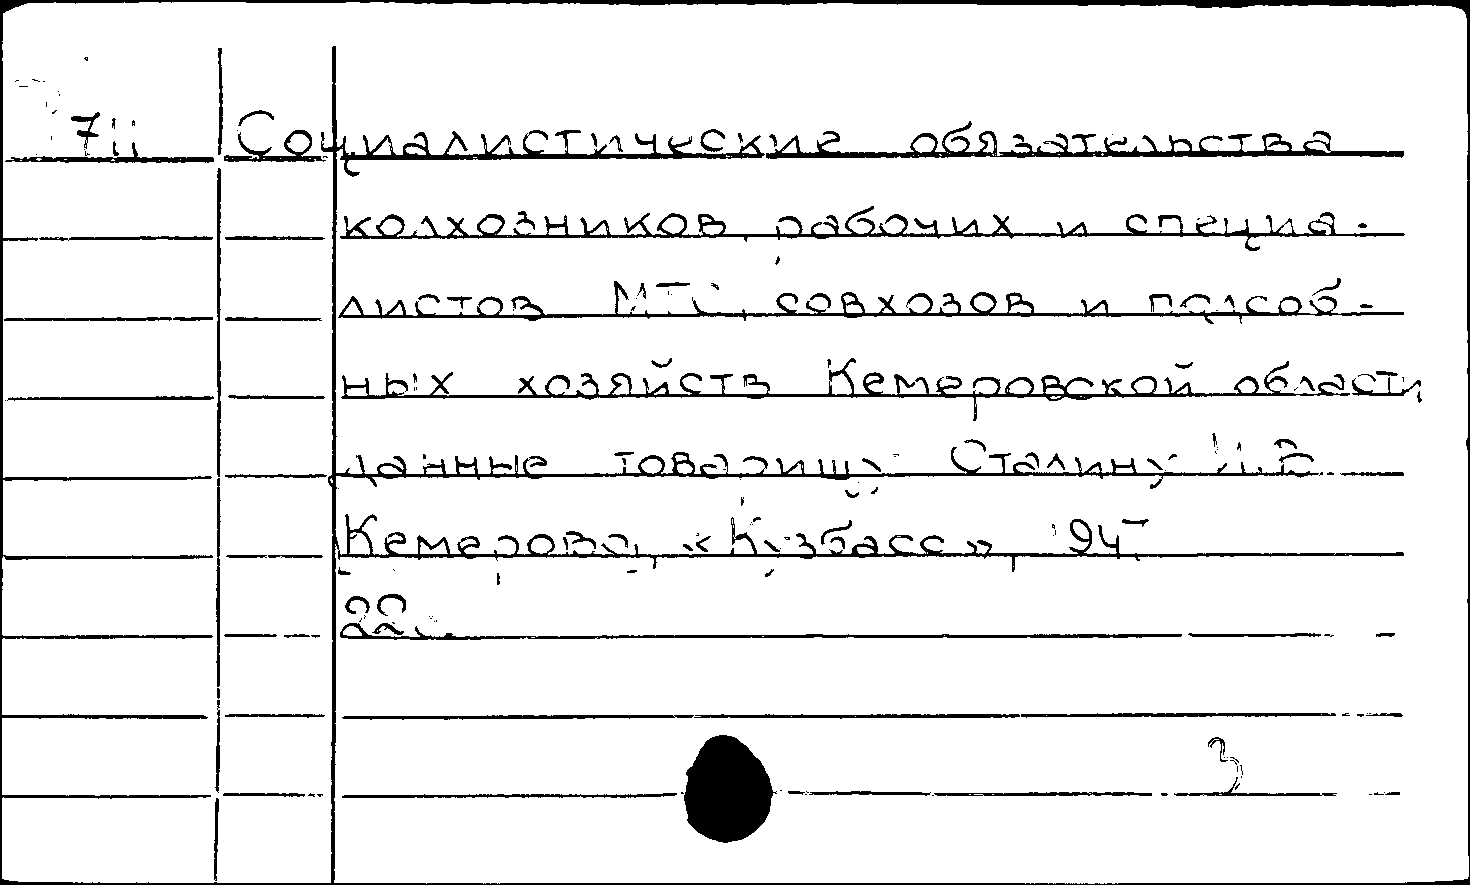 Социалистические обязательства
колхозников, рабочих и специа-
листов МТС, совхозов и подсоб-
ных хозяйств Кемеровской области,
данные товарищу Сталину И.В.
Кемерово, «Кузбасс»,
3